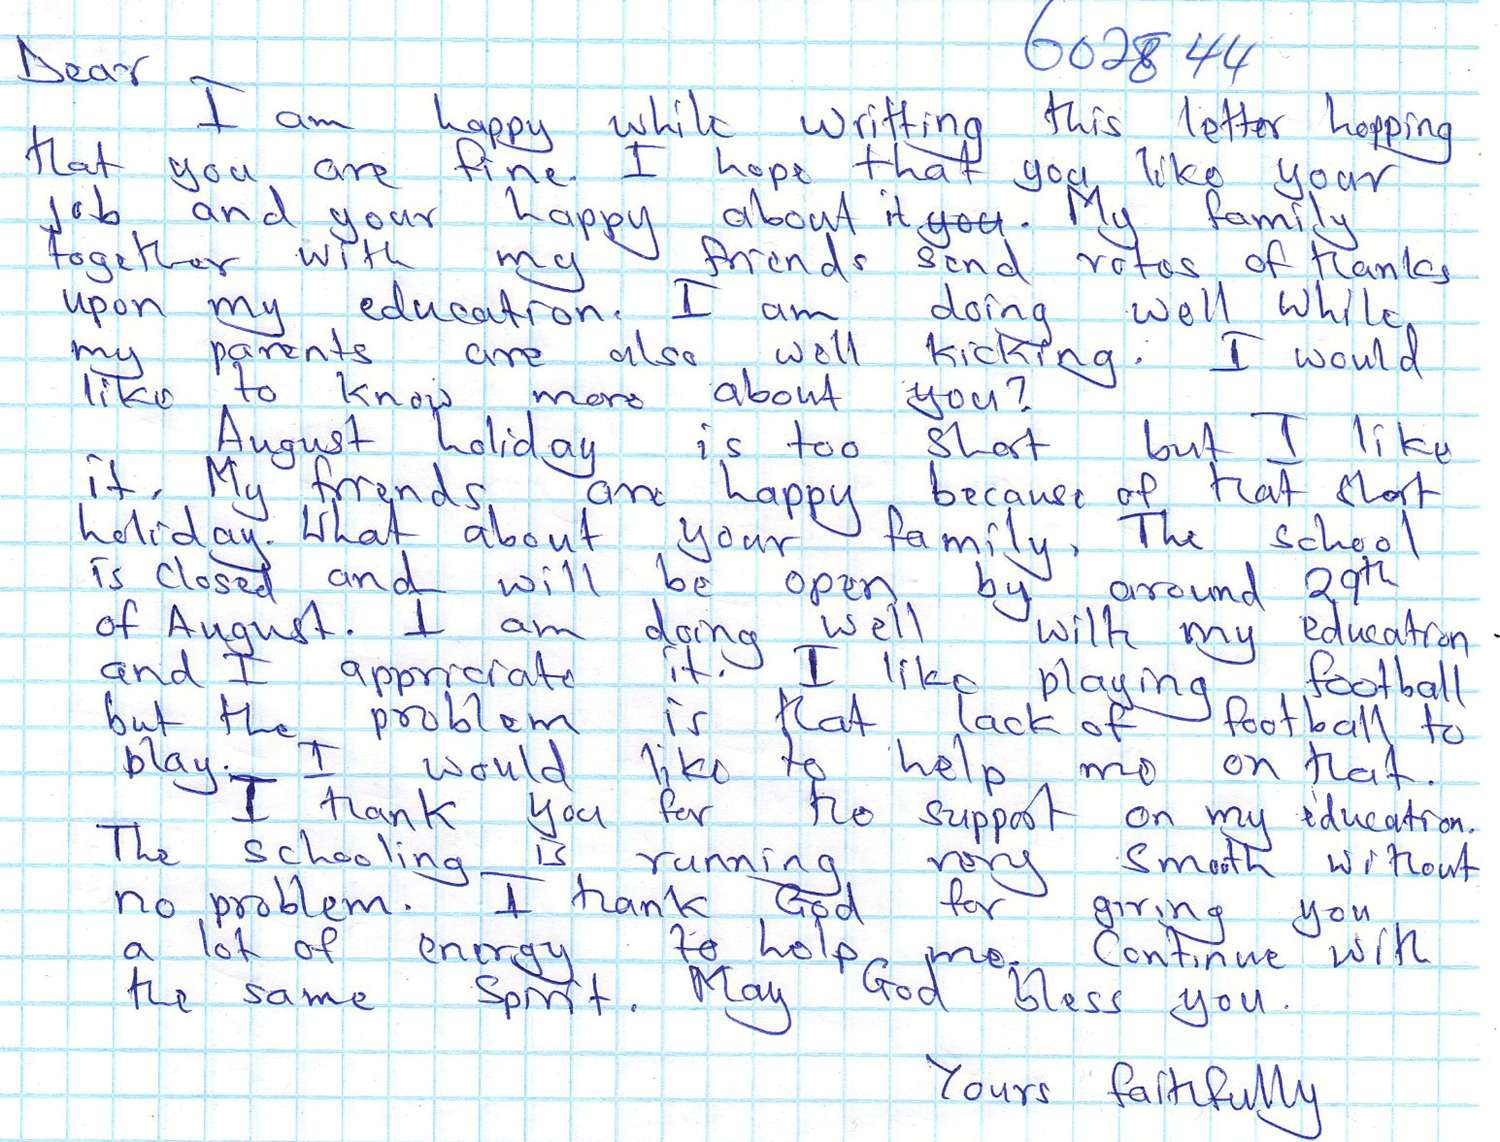 602844
Dear
I am happy while writting this letter hopping
that you are fine. I hope that you like your
job and your happy about it you. My family
together with my friends send votes of thanks
upon my education. I am doing well while
my parents are also well kicking. I would
like to know more about you?
August holiday is too short but I like
it. My friends are happy because of that short
holiday. What about your family, The school
is closed and will be open by around 29th
of August. I am doing well with my education
and I appriciate it. I like playing football
but the problem is that lack of football to
play. I would like to help me on that.
I thank you for the support on my education.
The schooling is running very smooth without
no problem. I thank God for giving you
a lot of energy to help me. Continue with
the same Spirit. May God bless you.
Yours faithfully